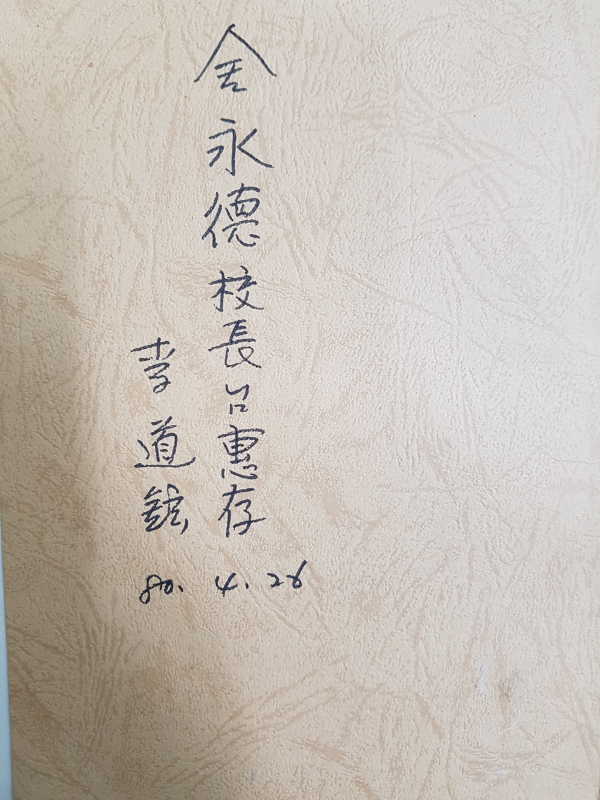 金永德校長台惠存
李道鉉
80. 4. 26